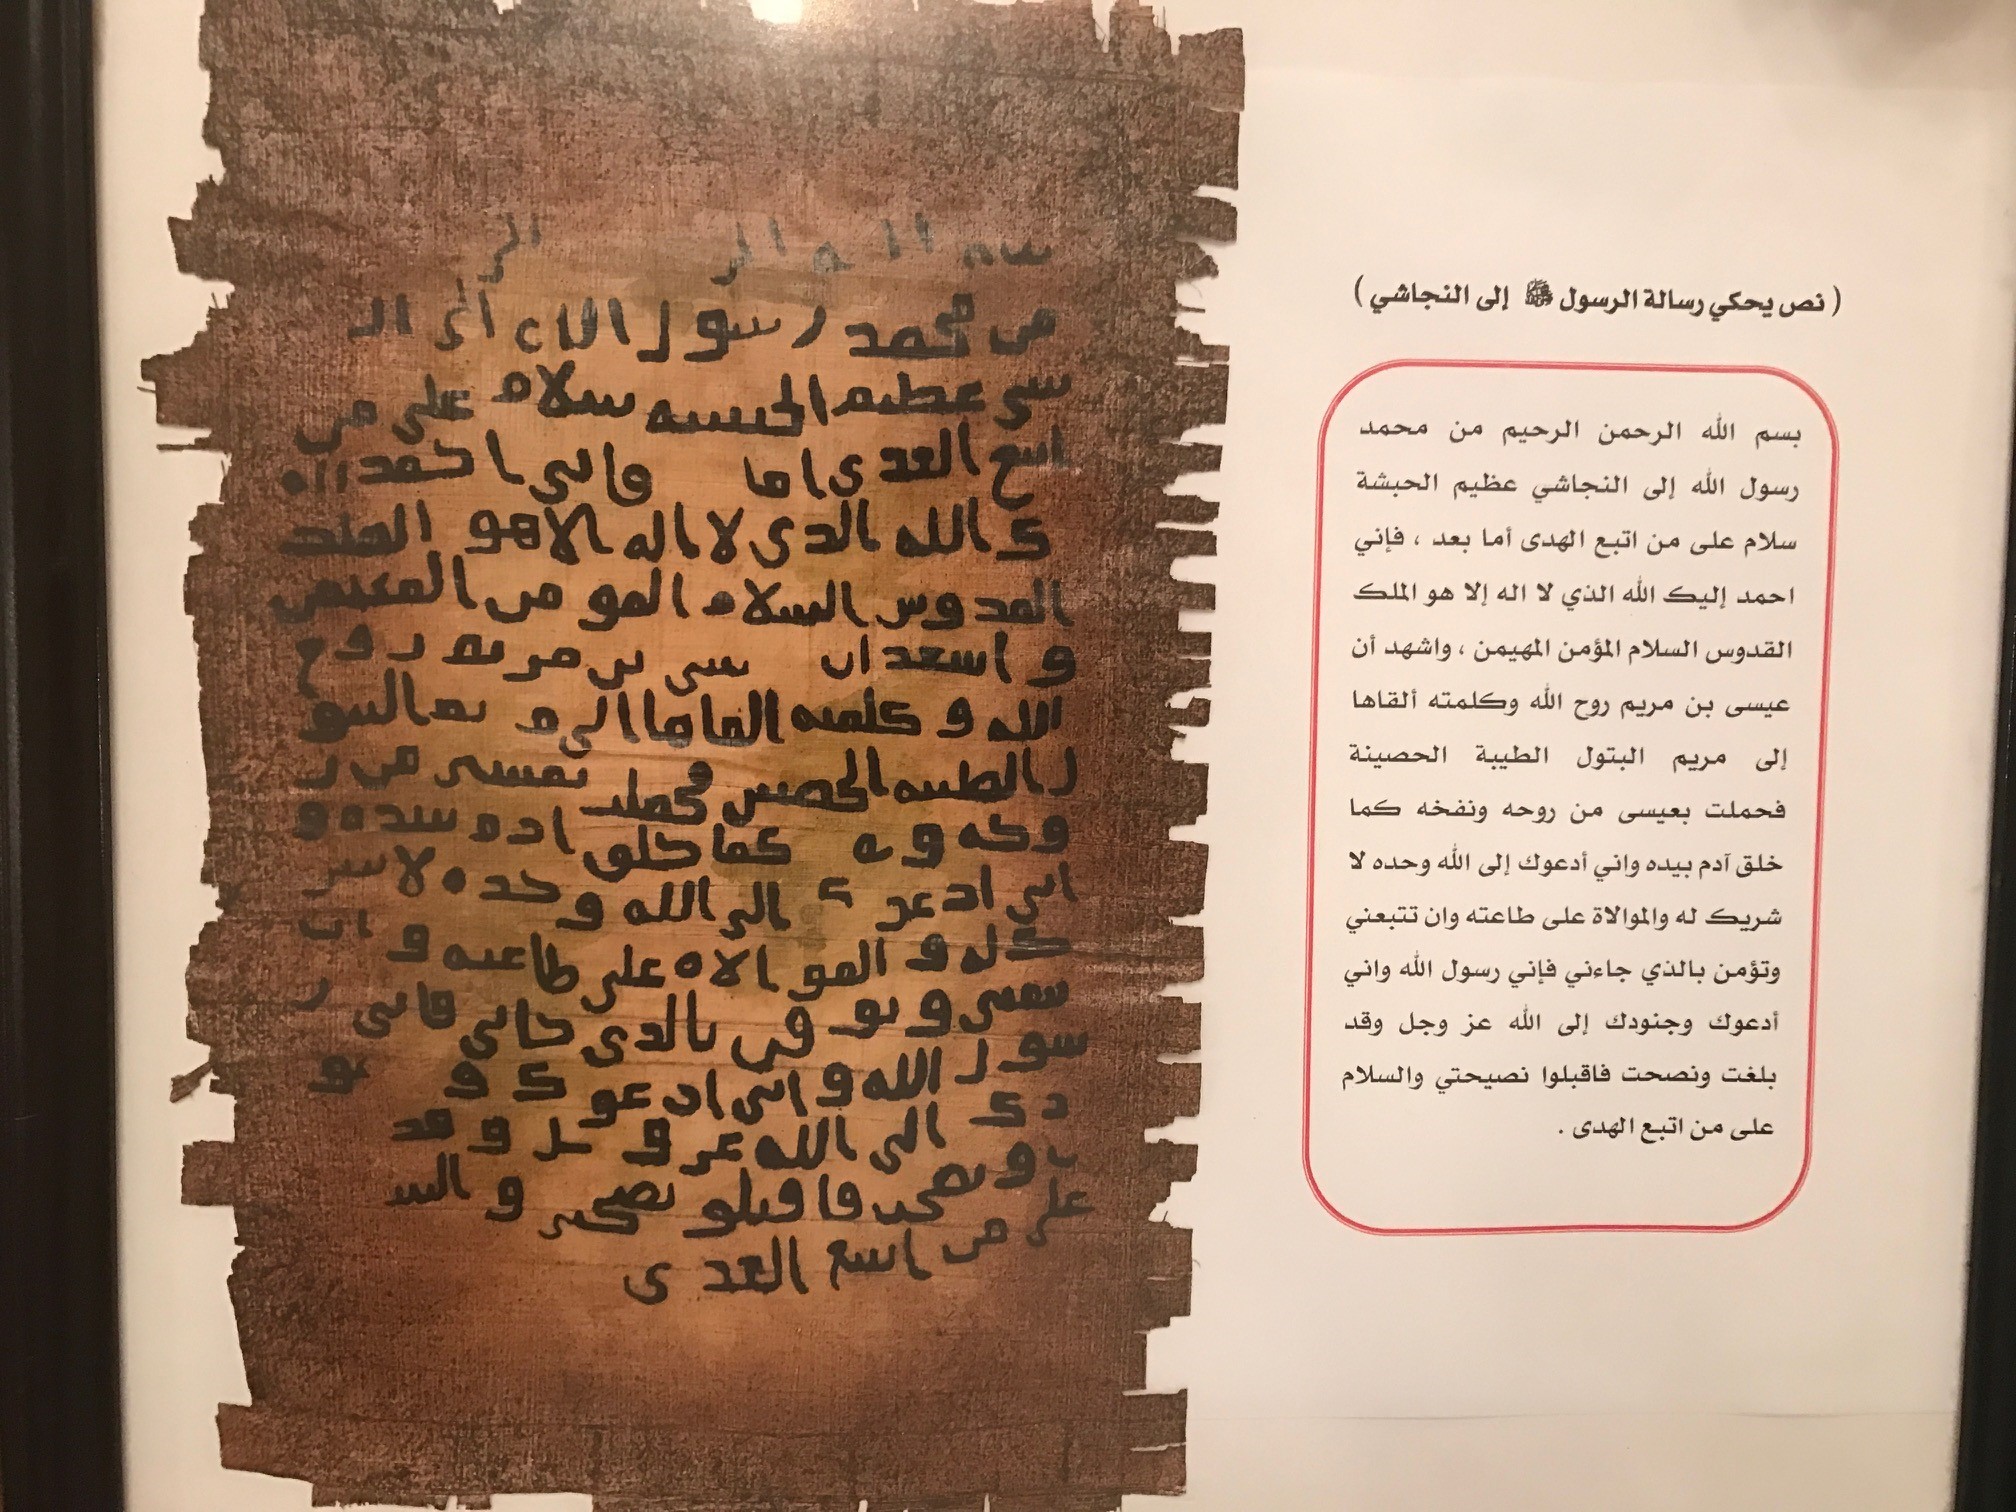 ( نص يحكي رسالة الرسول ﷺ إلى النجاشي )
بسم الله الرحمن الرحيم من محمد
رسول الله إلى النجاشي عظيم الحبشة
سلام على من اتبع الهدى أما بعد ، فإني
احمد إليك الله الذي لا اله إلا هو الملك
القدوس السلام المؤمن المهيمن ، واشهد أن
عيسى بن مريم روح الله وكلمته ألقاها
إلى مريم البتول الطيبة الحصينة
فحملت بعيسى من روحه ونفخه كما
خلق آدم بيده واني أدعوك إلى الله وحده لا
شريك له والموالاة على طاعته وان تتبعني
وتؤمن بالذي جاءني فإني رسول الله واني
أدعوك وجنودك إلى الله عز وجل وقد
بلغت ونصحت فاقبلوا نصيحتي والسلام
على من اتبع الهدى .
محمد رسول
عظيم الحبشه سلام على من
اتبع الهدى اما فانى احمد
ك الله الذى لا اله الا هو الملك
القدوس السلام المومن المهيمن
و اشهد ان بن مريم روح
الله و كلمته القاها الى البتو
ل الطيبه
كما خلق ادم بيده و
انى ادعو ك الى الله وحده لا شر
ك له و الموالاه على طاعته و ان
بالذى فانى ر
سول الله و انى ادعوك
الى الله عز و و قد
فاقبلو
على من اتبع الهدى